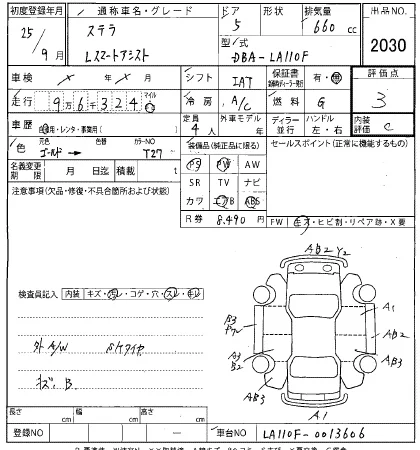 初度登録年月 通称車名・グレード ドア 形状 排気量 出品NO.
25/9月 ステラ Lスマートアシスト 5 660 cc 2030
型/式 DBA-LA110F
車検 × 年 × 月 シフト IAT 保証書 有・無 評価点 3
走行 9万6千324 マイル 冷房 A/C 燃料 G
車歴 自家用・レンタ・事業用( ) 定員 4人 外車モデル ディーラー 並行 ハンドル 左・右 内装評価 C
色 元色 ゴールド → 色替 カラーNO T27 装備品(純正品に限る) セールスポイント(正常に機能するもの)
名義変更期限 月 日迄 積載 t PS PW AW
注意事項(欠品・修復・不具合箇所および状態) SR TV ナビ
カワ エアB ABS
R券 8,490円 FW キズ・ヒビ割・リペア跡・X要
AB2 Y2
検査員記入 内装 キズ・汚レ・コゲ・穴・スレ・キレ
A1
B3
AB2
外A/W SKタイヤ
A3
B2
AB3
AB3
キズ、B
A1
長さ cm 幅 cm 高さ cm
登録NO - 車台NO LA110F-0013606